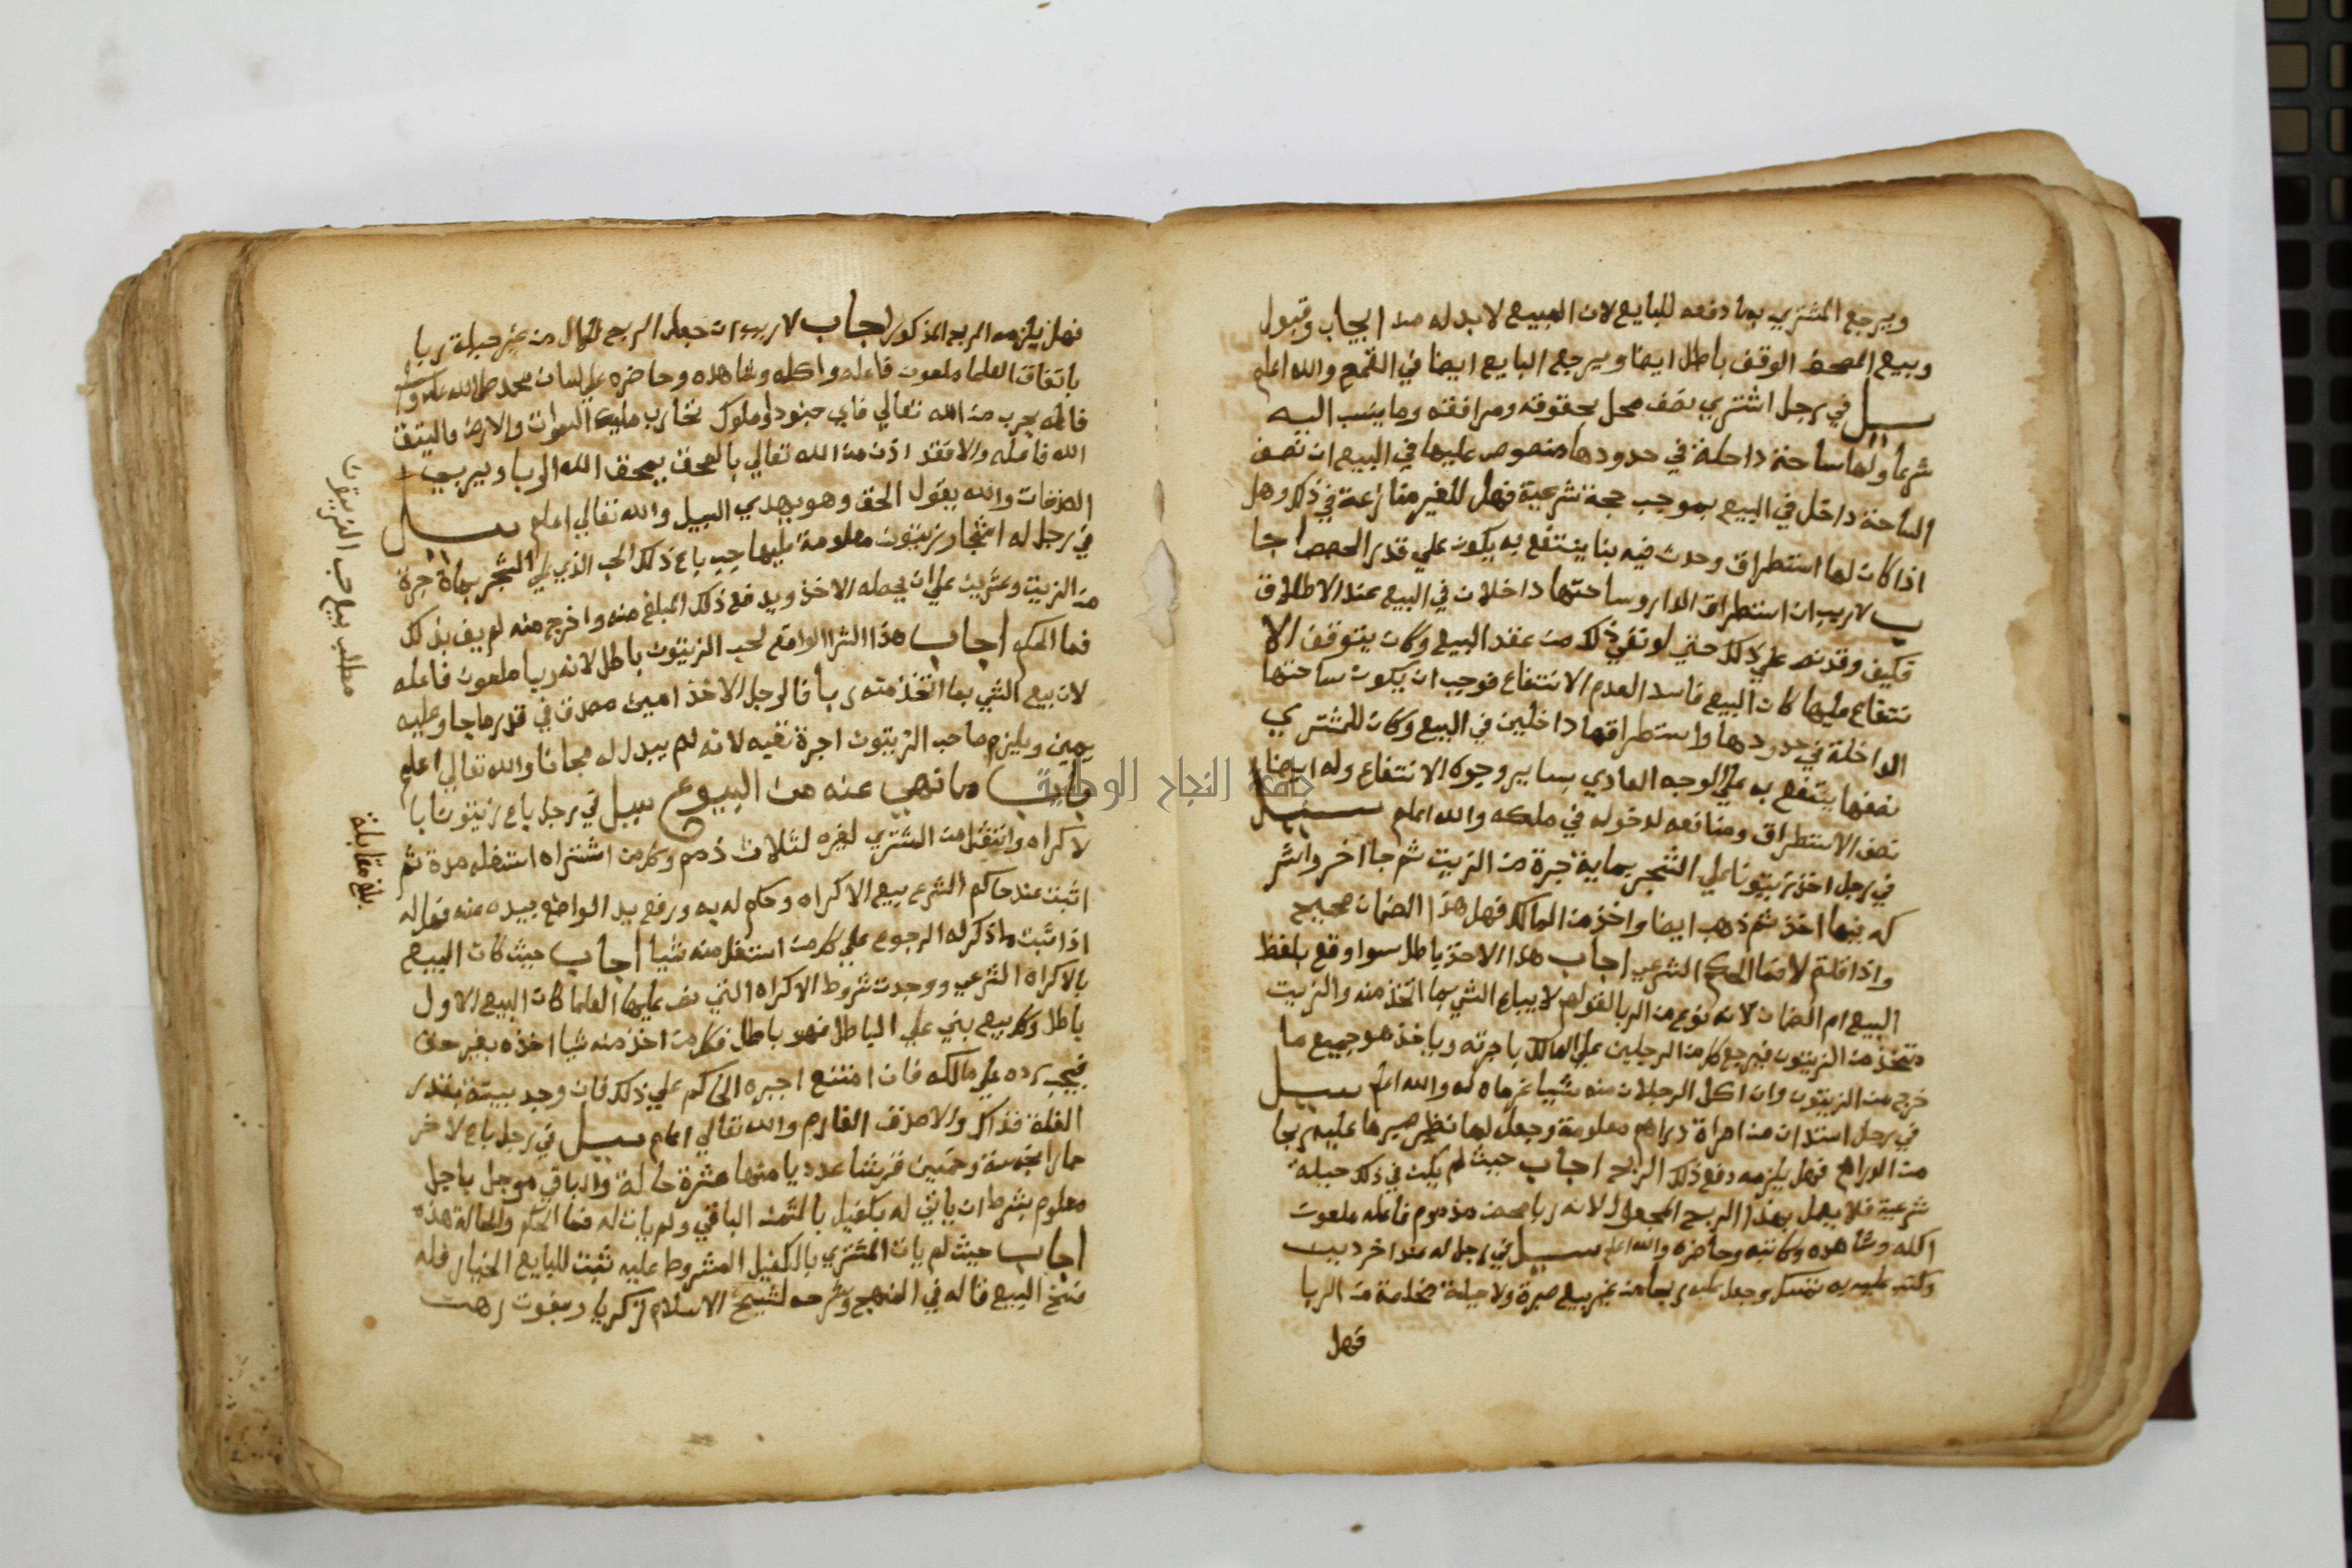 ويرجع المشتري بما دفعه للبايع لان المبيع لا بد له من ايجاب وقبول
وبيع المصحف الوقف باطل ايضا ويرجع البايع ايضا في القمح والله اعلم
سيل في رجل اشتري نصف محل بحقوقه ومرافقه وما ينسب اليه
شرعا ولها ساحة داخلة في حدودها منصوص عليها في البيع ان نصف
الساحة داخل في البيع بموجب حجة شرعية فهل للغير منازعة في ذلك وهل
اذا كان لها استطراق وحدث فيه بنا ينتفع به يكون علي قدر الحصص اجا
ب لا ريب ان استطراق الدار وساحتها داخلان في البيع عند الاطلاق
فكيف وقد نص علي ذلك حتي لو نفي ذلك من عقد البيع وكان يتوقف الا
نتفاع عليها كان البيع فاسدا لعدم الانتفاع فوجب ان يكون ساحتها
الداخلة في حدودها واستطراقها داخلين في البيع وكان للمشتري
نصفها ينتفع به علي الوجه العادي بساير وجوه الانتفاع وله ايضا
نصف الاستطراق ومنافعه لدخوله في ملكه والله اعلم سيل
في رجل اخذ زيتونا علي الشجر بماية جرة من الزيت ثم جا اخر واشر
كه فيها اخذ ثم ذهب ايضا واخذ من المالك فهل هذا الضمان صحيح
واذا قلتم لا فما الحكم الشرعي اجاب هذا الاخذ باطل سوا وقع بلفظ
البيع ام الضمان لانه نوع من الربا لقولهم لا يباع الشي بما اتخذ منه والزيت
متخذ من الزيتون فيرجع كل من الرجلين علي المالك باجرته وياخذ هو جميع ما
خرج من الزيتون وان اكل الرجلان منه شيا غرماه له والله اعلم سيل
في رجل استدان من امراة دراهم معلومة وجعل لها نظير صبرها عليه ربحا
من الدراهم فهل يلزمه دفع ذلك الربح اجاب حيث لم يكن في ذلك حيلة
شرعية فلا يعمل بهذا الربح المجعول لانه ربا محض مذموم فاعله ملعون
اكله وشاهده وكاتبه وحاضره والله اعلم سيل في رجل له عند اخر دين
وكتب عليه به تمسك وجعل عليه ربحا من غير بيع صبرة ولا حيلة مخلصة من الربا
فهل
فهل يلزمه الربح المذكور اجاب لا ريب ان جعل الربح للمال من غير حيلة ربا
باتفاق العلما ملعون فاعله واكله وشاهده وحاضره علي لسان محمد صلي الله عليه وسلم
فاعله بحرب من الله تعالي فاي جنود او ملوك تحارب مليك السموات والارض فاليتق
الله فاعله والا فقد اذن من الله تعالي بالمحق يمحق الله الربا ويربي
الصدقات والله يقول الحق وهو يهدي السبيل والله تعالي اعلم سيل
في رجل له اشجار زيتون معلومة عليها حب باع ذلك الحب الذي علي الشجر بماة جرة
من الزيت وعشرين علي ان يحطه الاخذ ويدفع ذلك المبلغ منه واخرج منه لم يف بذلك
فما الحكم اجاب هذا الشرا الواقع لحب الزيتون باطل لانه ربا ملعون فاعله
لان بيع الشي بما اتخذ منه ربا فالرجل الاخذ امين مصدق في قدر ما جا وعليه
يمين ويلزم صاحب الزيتون اجرة تعبه لانه لم يبذل له مجانا والله تعالي اعلم
باب ما نهي عنه من البيوع سيل في رجل باع زيتونا با
لاكراه وانتقل من المشتري لغيره لثلاث ذمم وكل من اشتراه استغله مدة ثم
اثبت عند حاكم الشرع بيع الاكراه وحكم له به ورفع يد الواضع يده عنه فهل له
اذا ثبت ما ذكر له الرجوع علي كل من استغل منه شيا اجاب حيث كان البيع
بالاكراه الشرعي ووجدت شروط الاكراه التي نص عليها العلما كان البيع الاول
باطل وكل بيع بني علي الباطل فهو باطل فكل من اخذ منه شيا اخذه بغير حق
فيجب رده علي مالكه فان امتنع اجبره الحاكم علي ذلك فان وجد بينة بقدر
الغلة فذاك والا صدق الغارم والله تعالي اعلم سيل في رجل باع لاخر
حمارا بخمسة وخمسين قرشا عدديا منها عشرة حالة والباقي موجل باجل
معلوم بشرط ان ياتي له بكفيل بالثمن الباقي ولم يات له فما الحكم والحالة هذه
اجاب حيث لم يات المشتري بالكفيل المشروط عليه ثبت للبايع الخيار فله
فسخ البيع قاله في المنهج وشرحه لشيخ الاسلام زكريا وبفوت رهن
مطلب بيع حب الزيتون
بلغ مقابلة
جامعة النجاح الوطنية